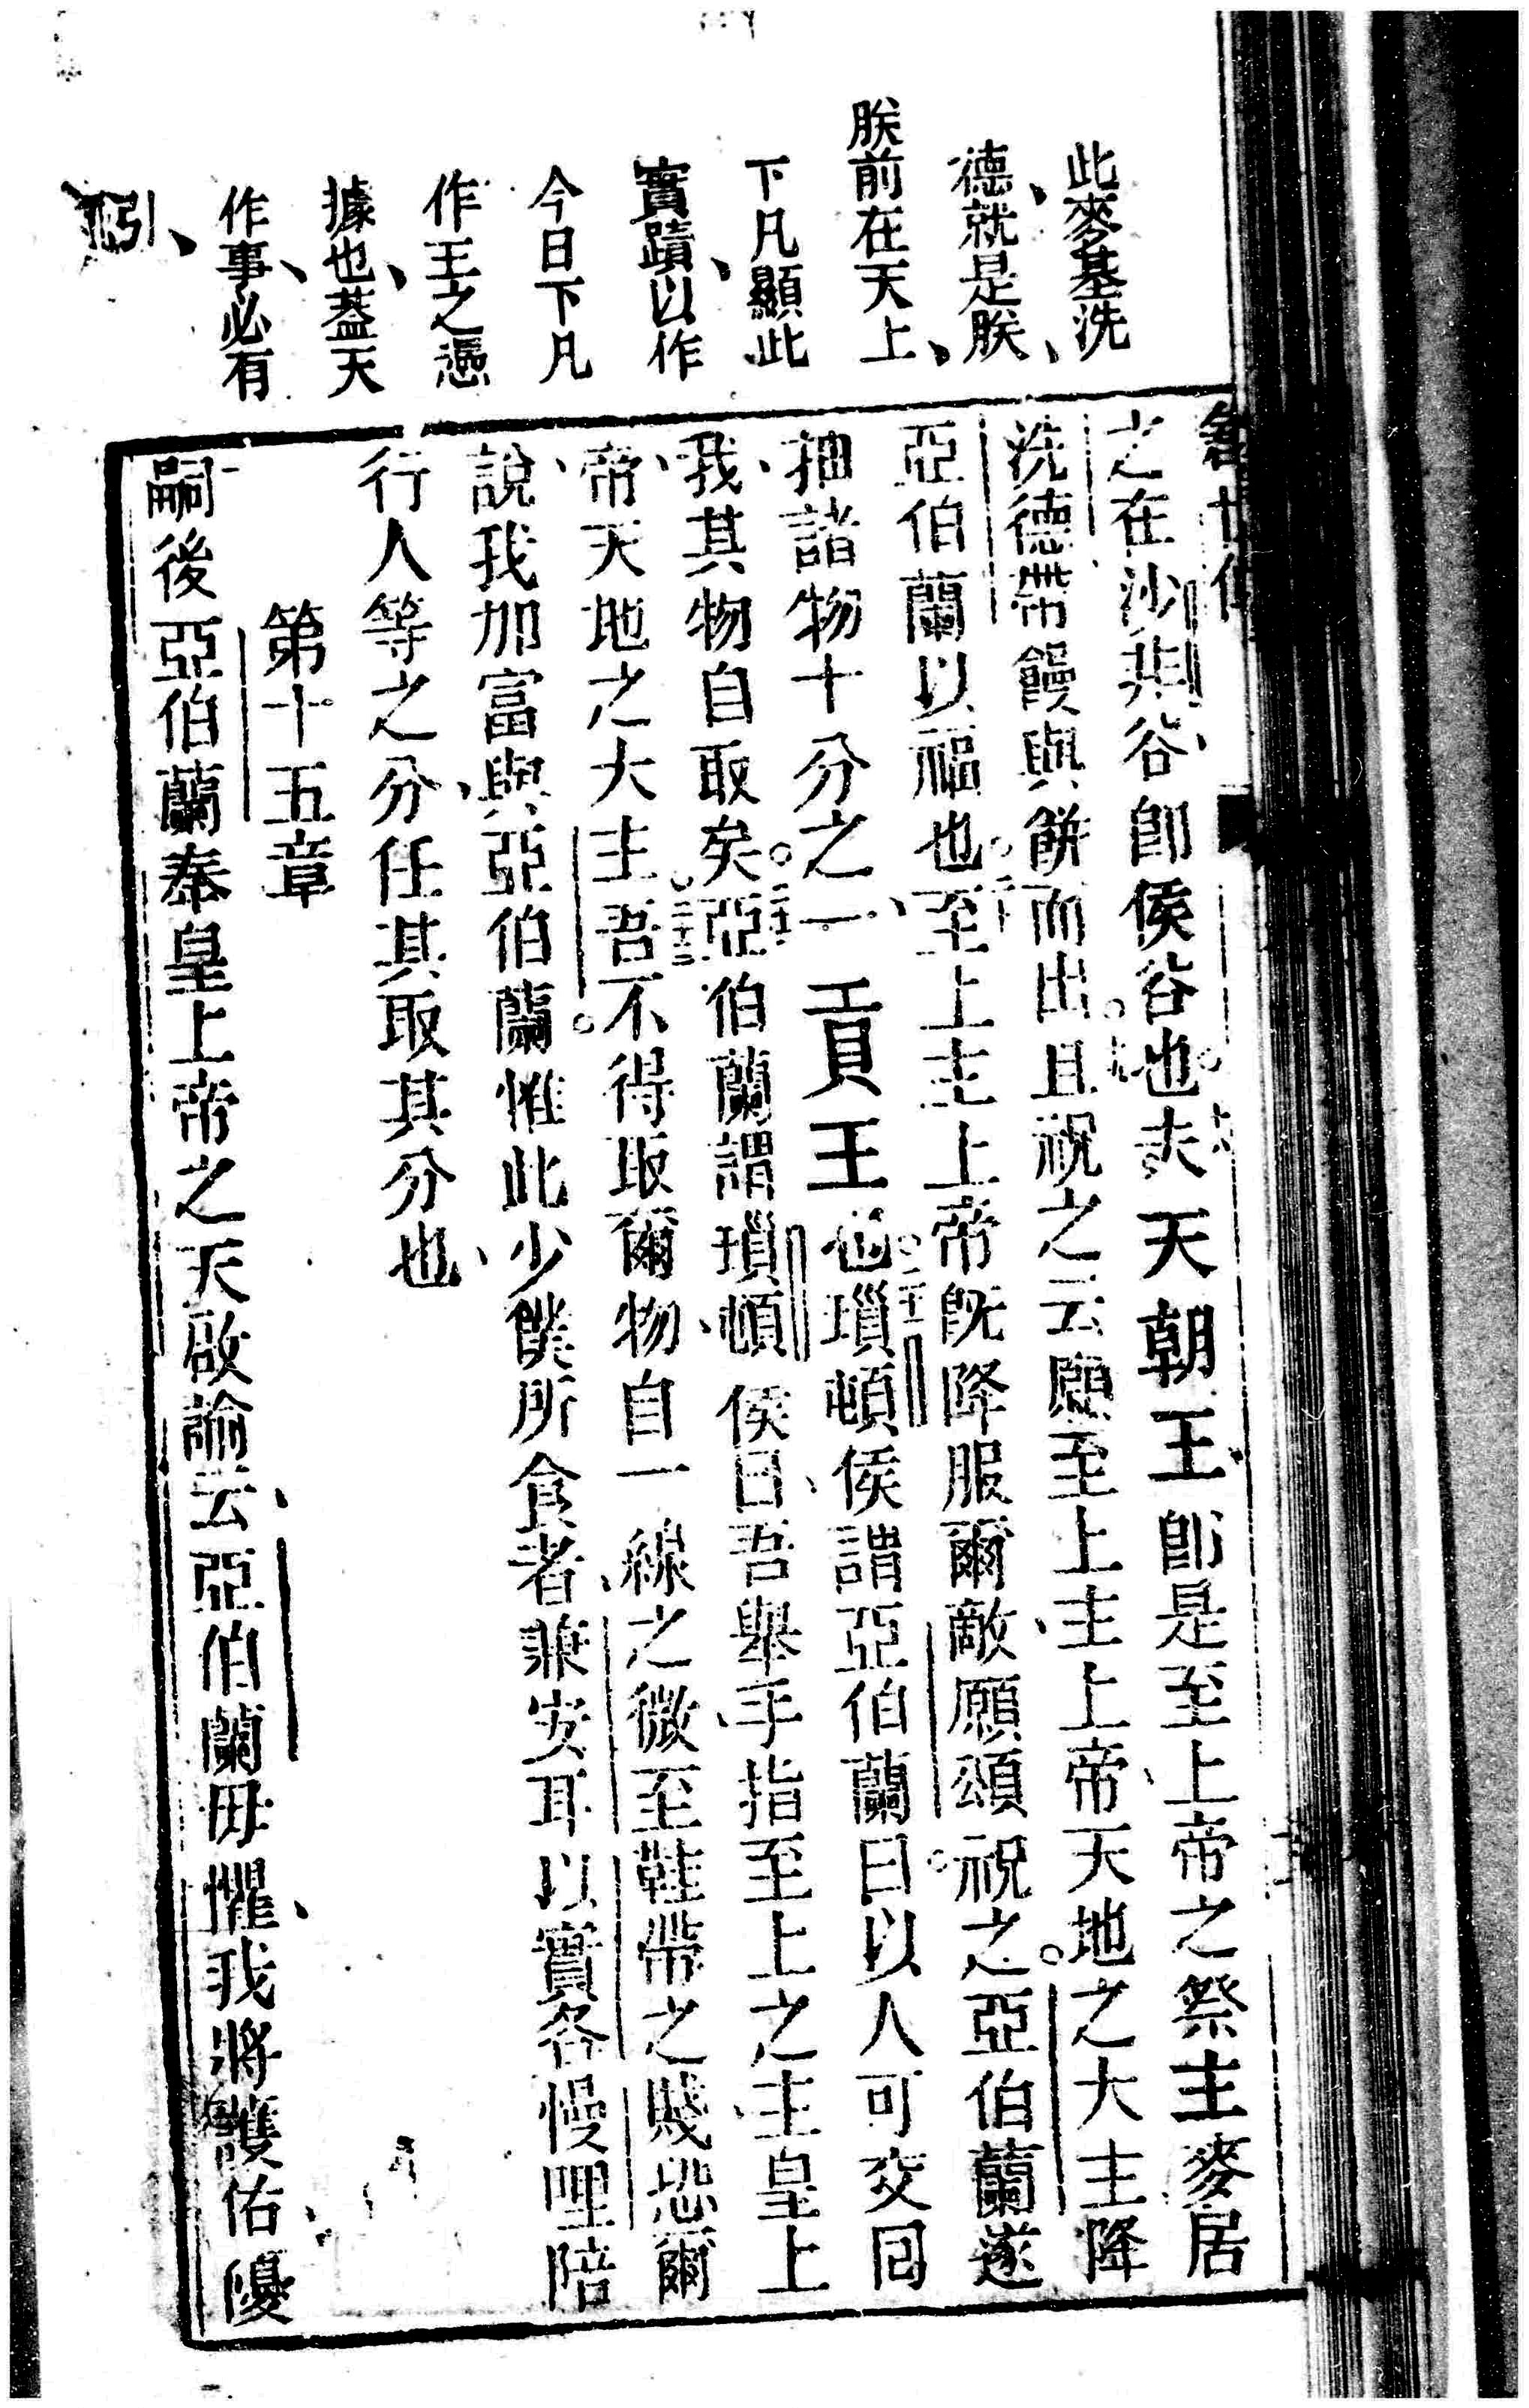 此麥基洗
德就是朕
朕前在天上
下凡顯此
實蹟以作
今日下凡
作王之憑
據也蓋天
作事必有
引
之在沙非谷卽侯谷也夫天朝王卽是至上帝之祭主麥居
洗德帶饅與餅而出且祝之云願至上主上帝天地之大主降
亞伯蘭以福也至上主上帝旣降服爾敵願頌祝之亞伯蘭遂
抽諸物十分之一貢王也瑣頓侯謂亞伯蘭曰以人可交囘
我其物自取矣亞伯蘭謂瑣頓侯曰吾舉手指至上之主皇上
帝天地之大主吾不得取爾物自一線之微至鞋帶之賤恐爾
說我加富與亞伯蘭惟此少僕所食者兼安耳以實各慢哩陪
行人等之分任其取其分也
第十五章
嗣後亞伯蘭奉皇上帝之天啟諭云亞伯蘭毋懼我將護佑優